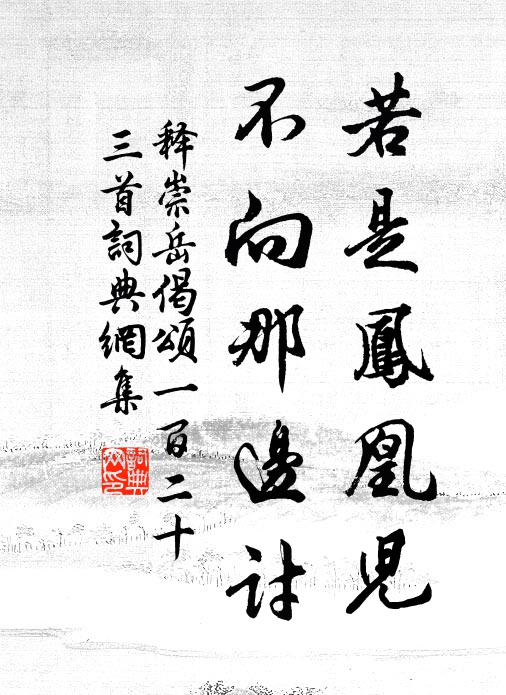 若是鳳凰児
不向那邊討
释崇岳偈頌一百二十
三首詞典網集
詞典网印